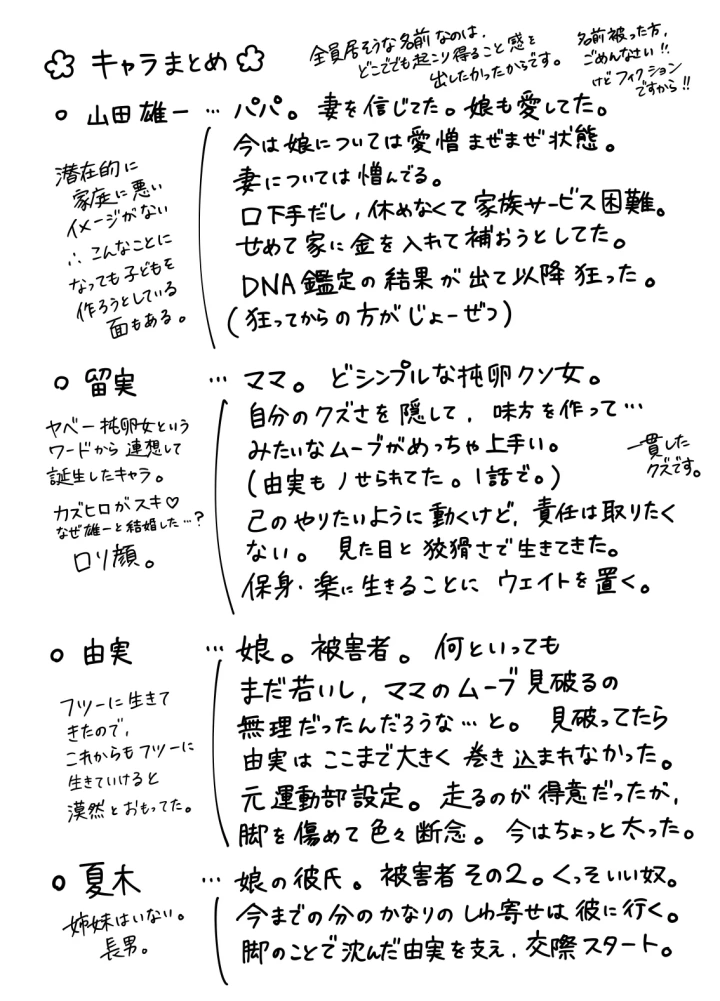 キャラまとめ
全員居そうな名前なのは、
どこででも起こり得ること感を
出したかったからです。
名前被った方、
ごめんなさい!!
けどフィクション
ですから!!
○ 山田雄一 … パパ。 妻を信じてた。娘も愛してた。
今は娘については愛憎まぜまぜ状態。
妻については憎んでる。
口下手だし、休めなくて家族サービス困難。
せめて家に金を入れて補おうとしてた。
DNA鑑定の結果が出て以降狂った。
(狂ってからの方がじょーぜつ)
潜在的に
家庭に悪い
イメージがない
∴こんなことに
なっても子どもを
作ろうとしている
面もある。
○ 留実 … ママ。 どシンプルな托卵クソ女。
自分のクズさを隠して、味方を作って…
みたいなムーブがめっちゃ上手い。
(由実もノせられてた。1話で。)
己のやりたいように動くけど、責任は取りたく
ない。 見た目と狡猾さで生きてきた。
保身・楽に生きることに ウェイトを置く。
一貫した
クズです。
ヤベー托卵女という
ワードから連想して
誕生したキャラ。
カズヒロがスキ♡
なぜ雄一と結婚した…?
ロリ顔。
○ 由実 … 娘。被害者。 何といっても
まだ若いし、ママのムーブ見破るの
無理だったんだろうな…と。 見破ってたら
由実はここまで大きく巻き込まれなかった。
元運動部設定。走るのが得意だったが、
脚を傷めて色々断念。今はちょっと太った。
フツーに生きて
きたので、
これからもフツーに
生きていけると
漠然とおもってた。
○ 夏木 … 娘の彼氏。被害者その2。くっそいい奴。
今までの分のかなりのしわ寄せは彼に行く。
脚のことで沈んだ由実を支え、交際スタート。
姉妹はいない。
長男。